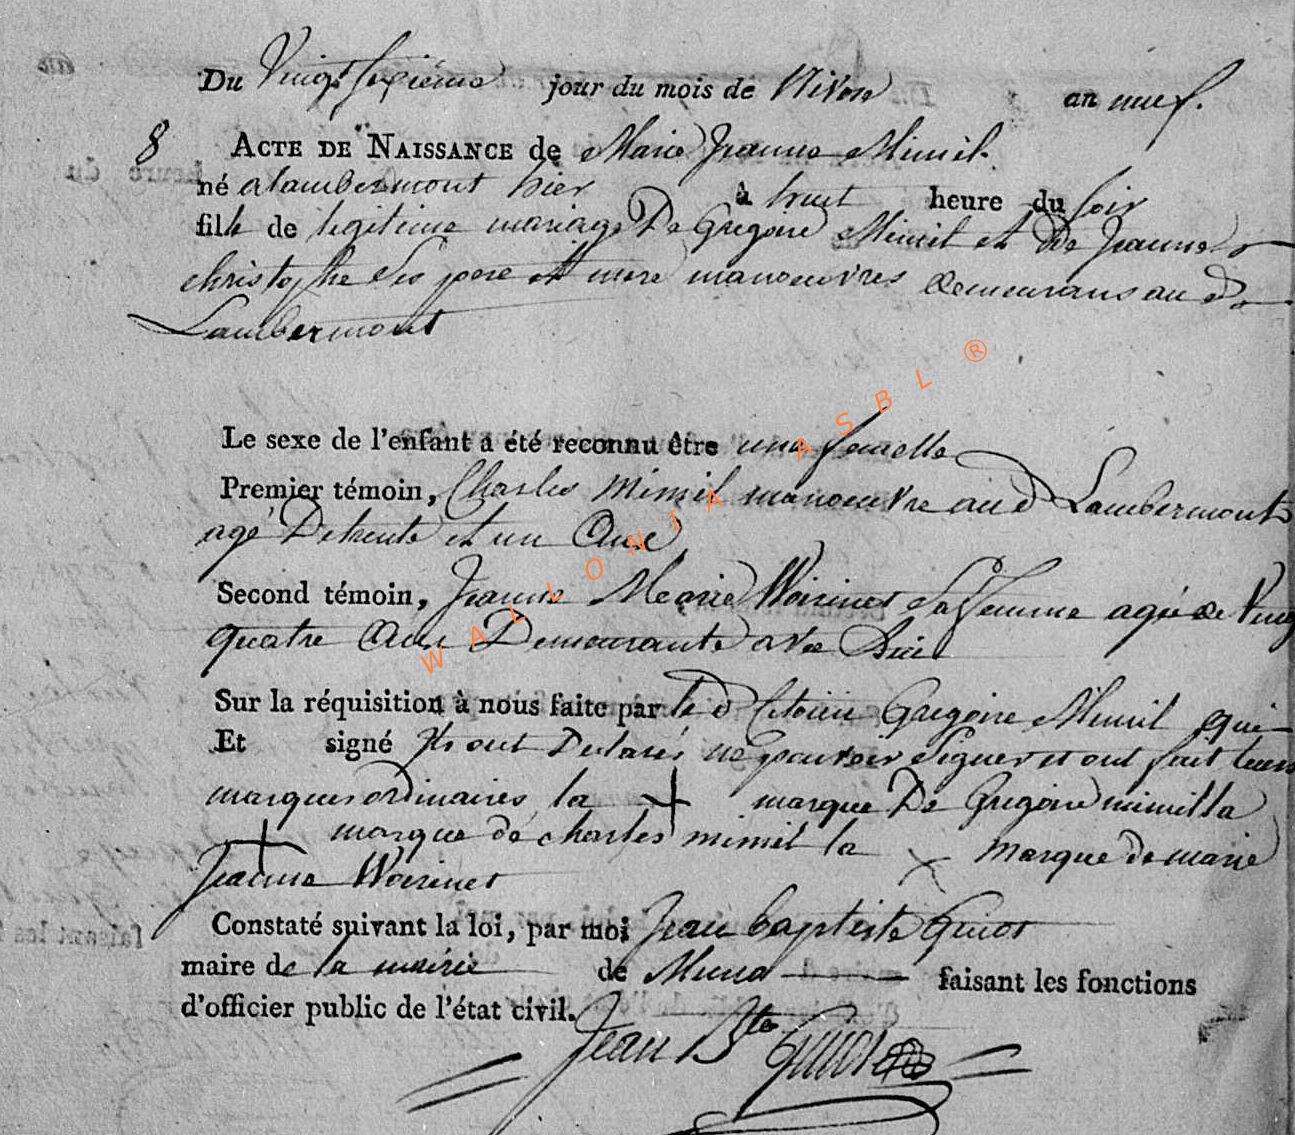 Du Vingt sixieme jour du mois de Nivose an neuf.
8 ACTE DE NAISSANCE de Marie Jeanne Mimil.
né a lambermont hier à huit heure du soir
fille de legitime mariage De Gregoire Mimil et De Jeanne
christophe Ses pere et mere manoeuvres demeurans au d
Lambermont
Le sexe de l'enfant a été reconnu être une femelle
Premier témoin, Charles Mimil manoeuvre au d Lambermont
agé De trente et un Ans
Second témoin, Jeanne Marie Woirinet Sa femme agée de Vingt
quatre Ans Demeurante avec lui
Sur la réquisition à nous faite par le d Citoien Gregoire Mimil qui
Et signé Ils ont Declarés ne pouvoir Signer et ont fait leurs
marques ordinaires la + marque De Gregoire mimil la
+ marque de charles mimil la x marque de marie
Jeanne Woirinet
Constaté suivant la loi, par moi Jean baptiste Guiot
maire de la mairie de Muno faisant les fonctions
d'officier public de l'état civil.
Jean Bte Guiot
WALLONIA ASBL ®